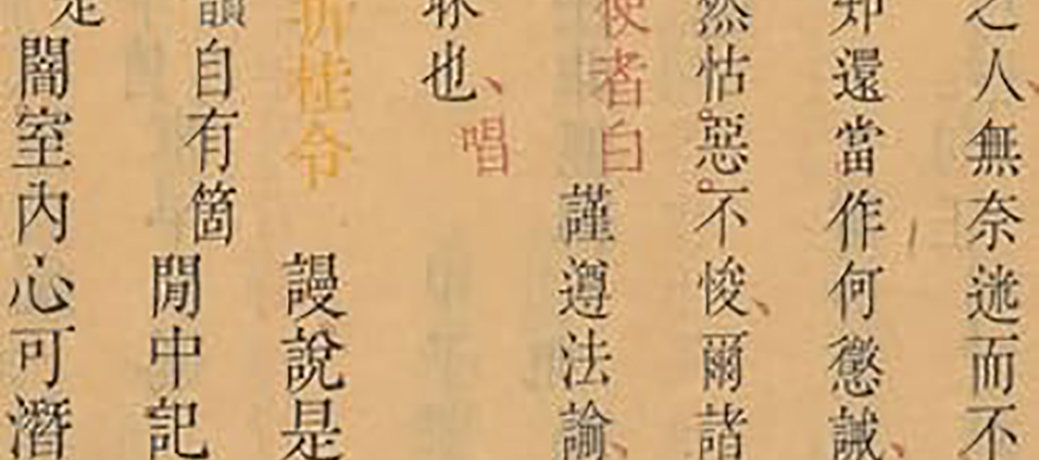 之人無奈迯而不
却還當作何懲誡
然怙惡不悛爾諸
使者白
謹遵法諭
也
唱
折桂令
謾說是
韻自有箇
閒中記
闇室內心可潛